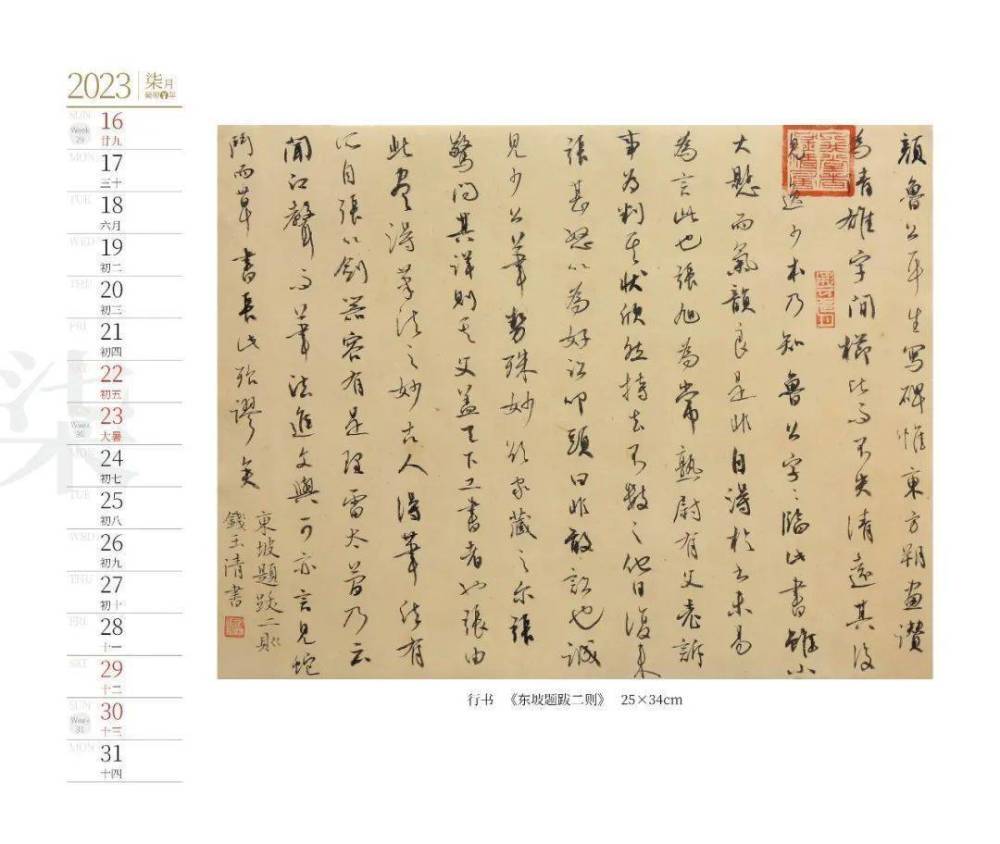 2023 柒月
癸卯年
SUN 16 廿九
Week 29
MON 17 三十
TUE 18 六月
WED 19 初二
THU 20 初三
FRI 21 初四
SAT 22 初五
SUN 23 大暑
Week 30
MON 24 初七
TUE 25 初八
WED 26 初九
THU 27 初十
FRI 28 十一
SAT 29 十二
SUN 30 十三
Week 31
MON 31 十四
柒
顏魯公平生写碑惟東方朔画讚
為清雄字間櫛比而不失清遠其後
見逸少本乃知魯公字〻臨此書雖小
大懸而氣韻良是非自得於書未易
為言此也張旭為常熟尉有父老訴
事為判其状欣然持去不數〻他日復来
張甚怒以為好訟叩頭曰非敢訟也誠
見少公筆勢殊妙欲家藏之尔張
驚問其詳則其父盖天下工書者也張由
此盡得筆法之妙古人得筆法有
所自張以劍器容有是理雷太簡乃云
聞江聲而筆法進文與可亦言見蛇
鬥而草書長此殆謬矣
東坡題跋二則
錢玉清書
行书 《东坡题跋二则》 25×34cm